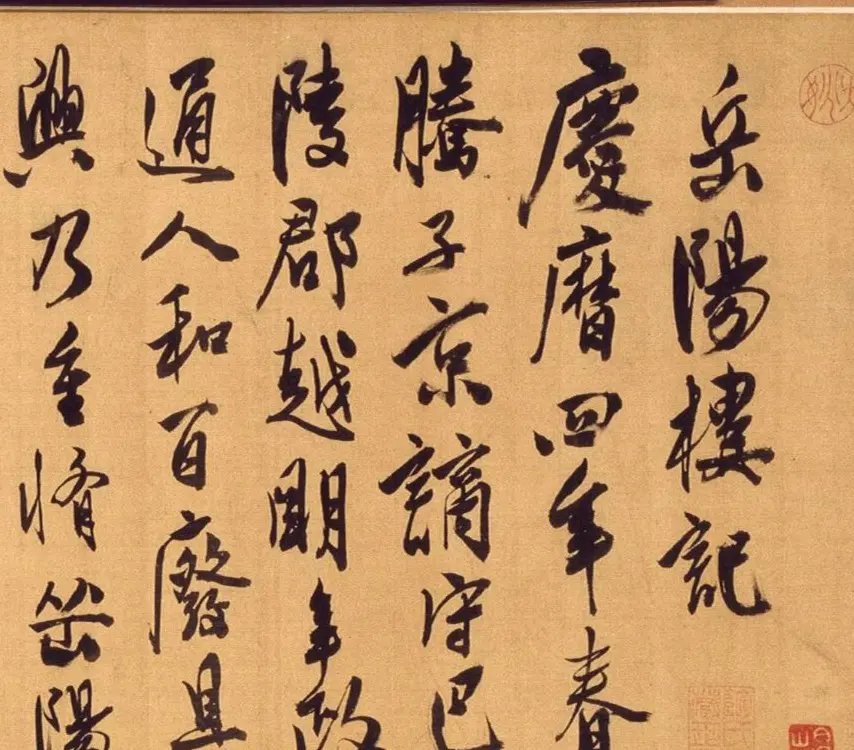 岳陽樓記
慶曆四年春
騰子京謫守巴
陵郡越明年政
通人和百廢具
興乃重脩岳陽